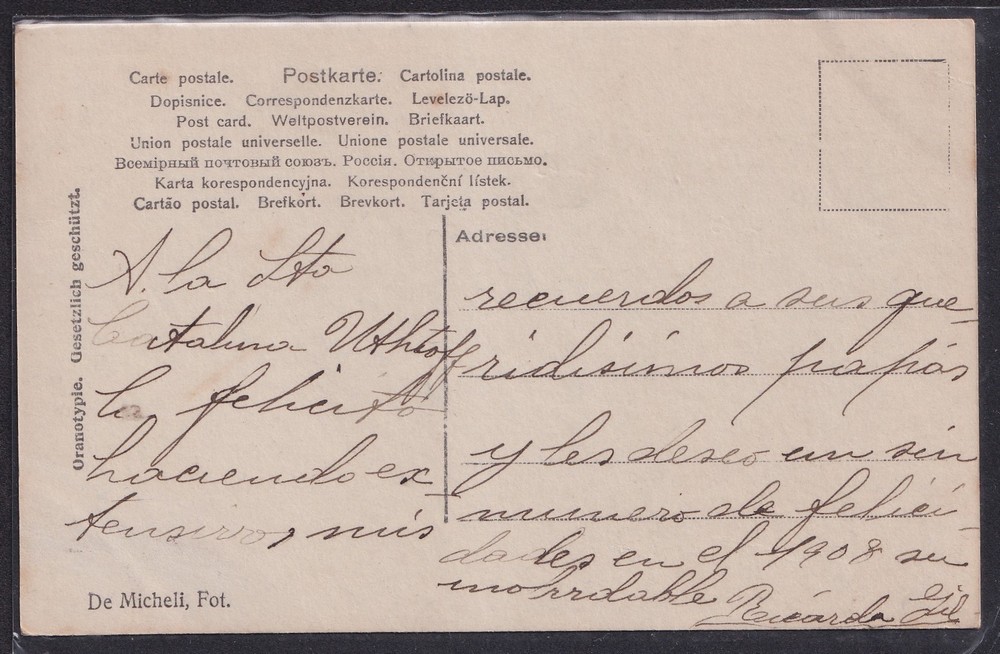 Carte postale. Postkarte. Cartolina postale.
Dopisnice. Correspondenzkarte. Levelező-Lap.
Post card. Weltpostverein. Briefkaart.
Union postale universelle. Unione postale universale.
Всемірный почтовый союзъ. Россія. Открытое письмо.
Karta korespondencyjna. Korespondenční lístek.
Cartão postal. Brefkort. Brevkort. Tarjeta postal.
Oranotypie. Gesetzlich geschützt.
Adresse:
A. la Sta
Catalina Uthoff
la felicito
haciendo ex-
tensivos mis
recuerdos a sus que-
ridisimos papás
y les deseo un sin
numero de felici-
dades en el 1908 su
Ricarda Gil
De Micheli, Fot.